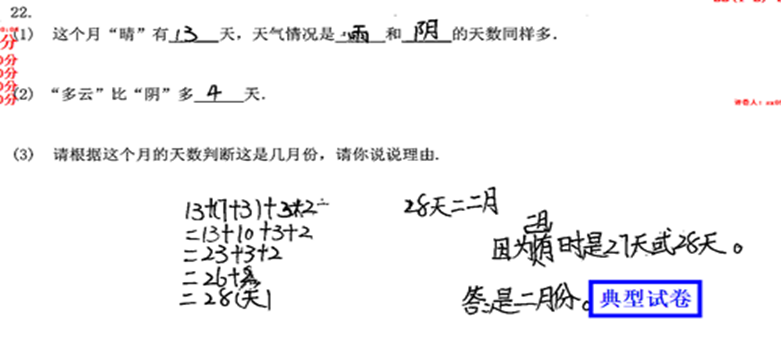 22.
(1) 这个月“晴”有 13 天，天气情况是 雨 和 阴 的天数同样多.
(2) “多云”比“阴”多 4 天.
(3) 请根据这个月的天数判断这是几月份，请你说说理由.
13+(7+3)+3+2=
=13+10+3+2
=23+3+2
=26+2
=28(天)
28天=二月
因为二月有时是27天或28天。
答:是二月份。
典型试卷